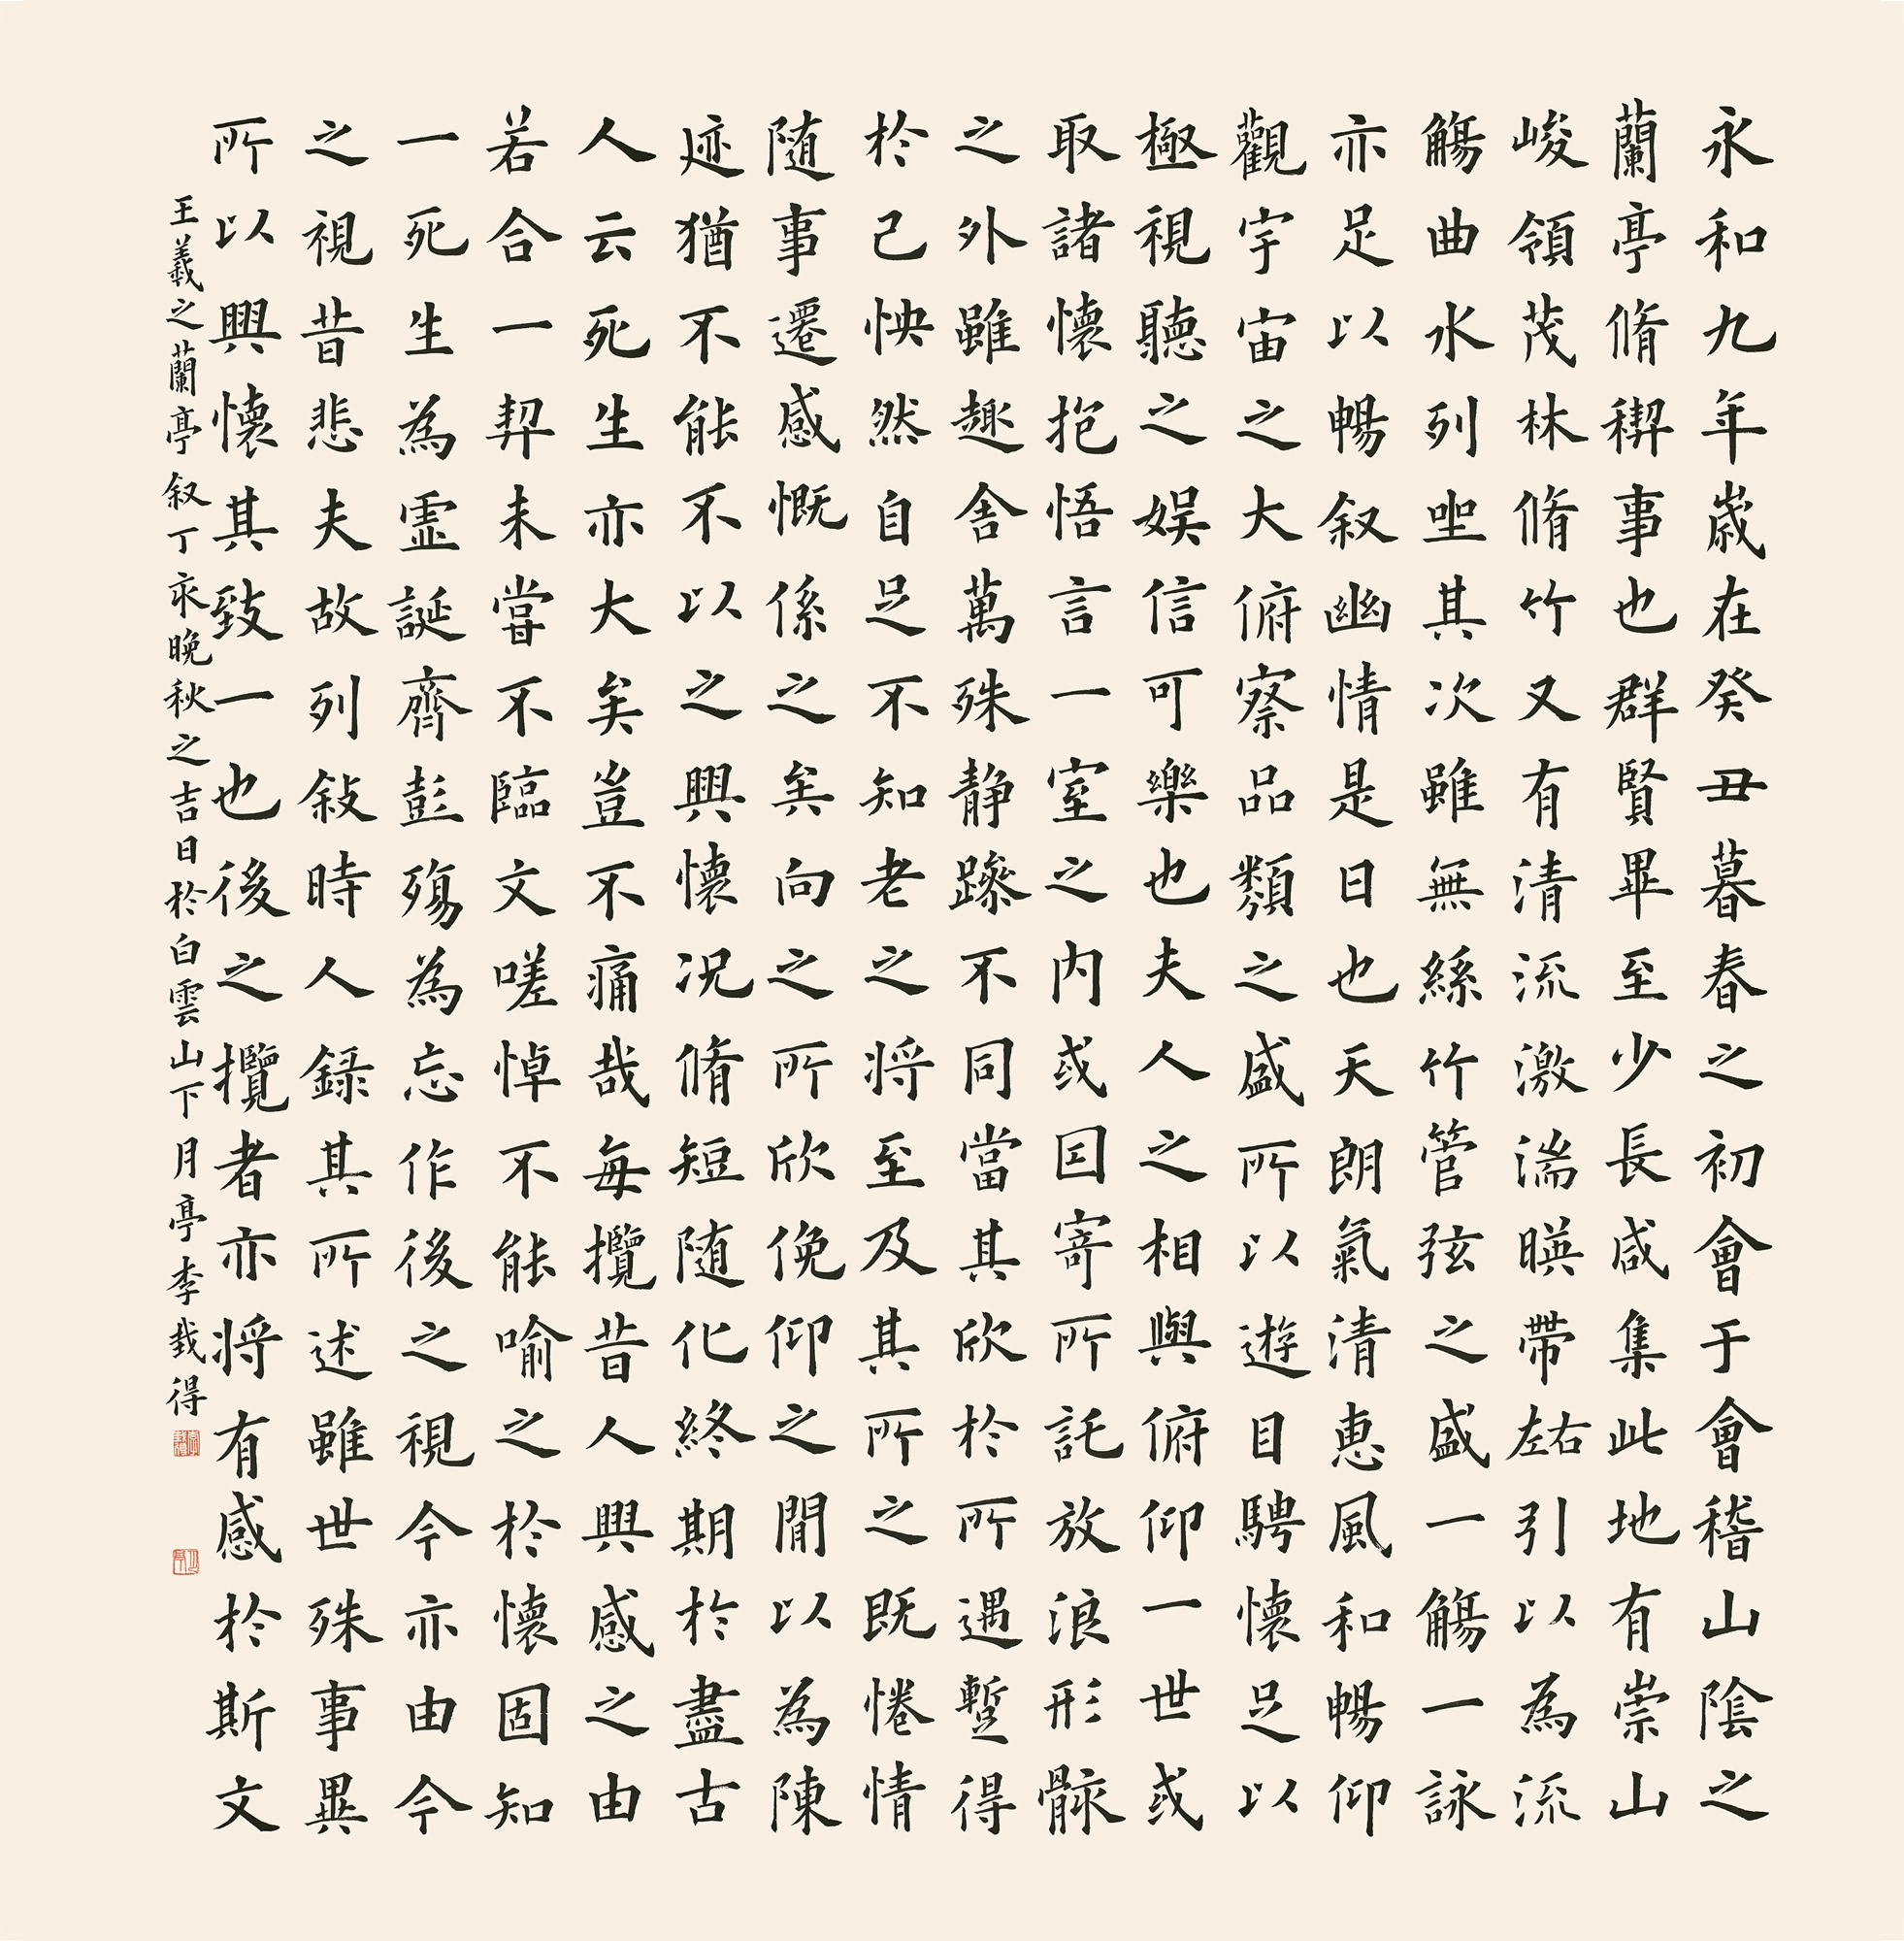 永和九年歲在癸丑暮春之初會于會稽山陰之
蘭亭脩稧事也群賢畢至少長咸集此地有崇山
峻領茂林脩竹又有清流激湍暎帶左右引以為流
觴曲水列坐其次雖無絲竹管弦之盛一觴一詠
亦足以暢叙幽情是日也天朗氣清惠風和暢仰
觀宇宙之大俯察品類之盛所以遊目騁懷足以
極視聽之娛信可樂也夫人之相與俯仰一世或
取諸懷抱悟言一室之內或因寄所託放浪形骸
之外雖趣舍萬殊静躁不同當其欣於所遇暫得
於己怏然自足不知老之將至及其所之既惓情
隨事遷感慨係之矣向之所欣俛仰之閒以為陳
迹猶不能不以之興懷況脩短隨化終期於盡古
人云死生亦大矣豈不痛哉每攬昔人興感之由
若合一契未嘗不臨文嗟悼不能喻之於懷固知
一死生為虛誕齊彭殤為忘作後之視今亦由今
之視昔悲夫故列敍時人錄其所述雖世殊事異
所以興懷其致一也後之攬者亦將有感於斯文
王羲之蘭亭叙丁亥晚秋之吉日於白雲山下月亭李得